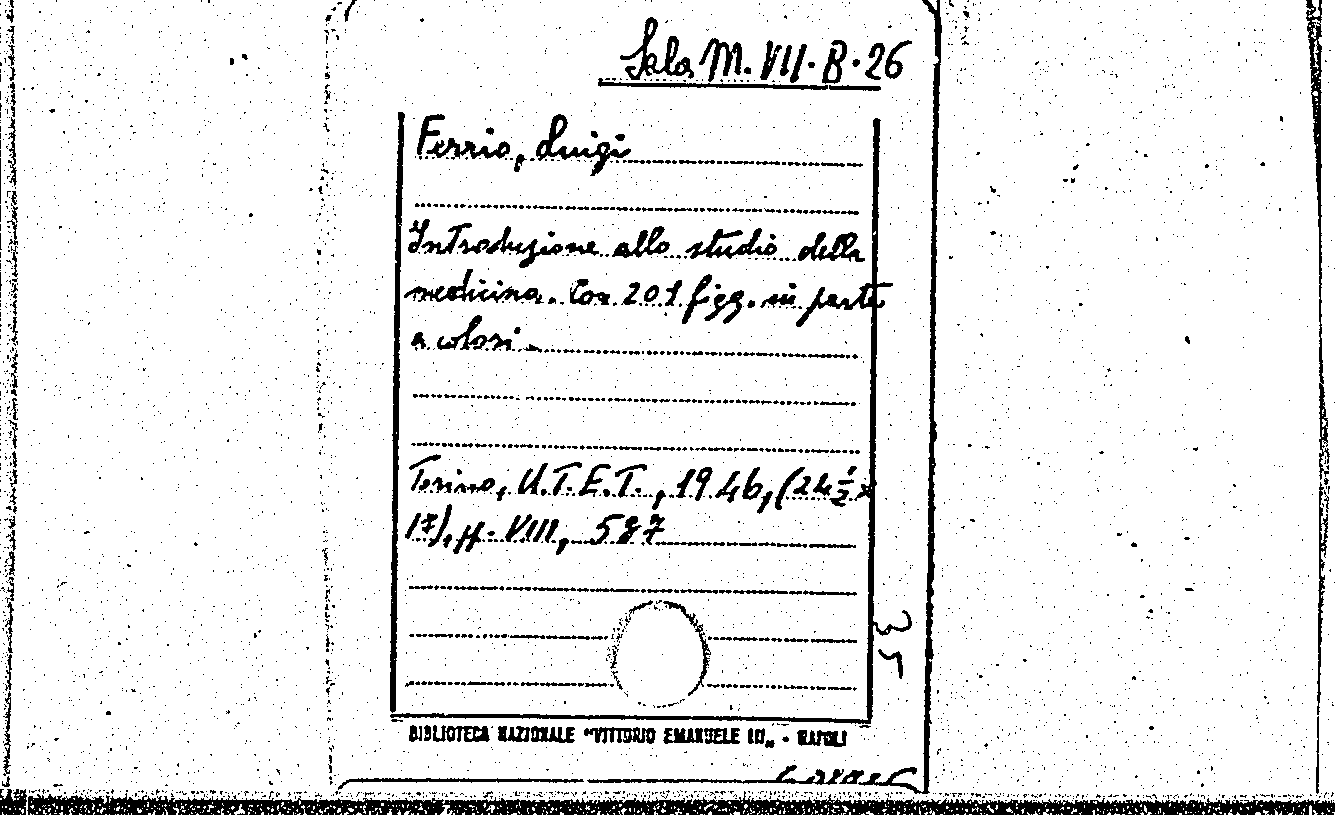 Sala M. VII. B. 26
Ferrio, Luigi
Introduzione allo studio della
medicina. Con 201 figg. in parte
a colori.
Torino, U.T.E.T., 1946, (24½ x
17), pp. VIII, 587
35
BIBLIOTECA NAZIONALE "VITTORIO EMANUELE III„ - NAPOLI